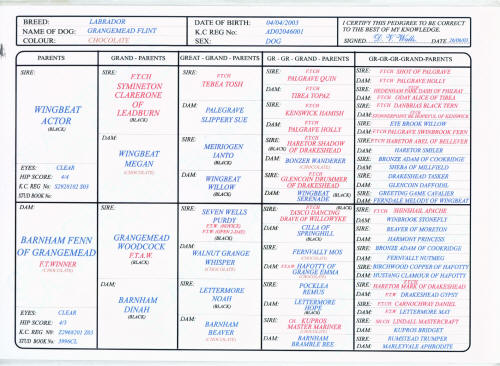 BREED: LABRADOR
NAME OF DOG: GRANGEMEAD FLINT
COLOUR: CHOCOLATE
DATE OF BIRTH: 04/04/2003
K.C REG No: AD02046001
SEX: DOG
I CERTIFY THIS PEDIGREE TO BE CORRECT
TO THE BEST OF MY KNOWLEDGE.
SIGNED DATE 26/06/03
PARENTS
SIRE:
WINGBEAT
ACTOR
(BLACK)
EYES: CLEAR
HIP SCORE: 4/4
K.C REG No: S2928102 S03
STUD BOOK No:
DAM:
BARNHAM FENN
OF GRANGEMEAD
F.T.WINNER
(CHOCOLATE)
EYES: CLEAR
HIP SCORE: 4/3
K.C REG No: Z2968201 Z03
STUD BOOK No: 3996CL
GRAND - PARENTS
SIRE: F.T.CH
SYMINETON
CLARERONE
OF
LEADBURN
(BLACK)
DAM:
WINGBEAT
MEGAN
(CHOCOLATE)
SIRE:
GRANGEMEAD
WOODCOCK
F.T.A.W.
(BLACK)
DAM:
BARNHAM
DINAH
(BLACK)
GREAT - GRAND - PARENTS
SIRE: F.T.CH
TEBEA TOSH
DAM: PALEGRAVE
SLIPPERY SUE
SIRE: MEIRIOGEN
IANTO
(BLACK)
DAM: WINGBEAT
WILLOW
(BLACK)
SIRE: SEVEN WELLS
PURDY
F.T.W (NOVICE)
F.T.W (OPEN 2-DAY)
(BLACK)
DAM: WALNUT GRANGE
WHISPER
(CHOCOLATE)
SIRE: LETTERMORE
NOAH
(BLACK)
DAM: BARNHAM
BEAVER
(CHOCOLATE)
GR - GR - GRAND - PARENTS
SIRE: F.T.CH
PALGRAVE QUIN
DAM: F.T.CH
TIBEA TOPAZ
SIRE: F.T.CH
KENSWICK HAMISH
DAM: F.T.CH
PALGRAVE HOLLY
SIRE: F.T.CH
(BLACK) HARETOR SHADOW
OF DRAKESHEAD
DAM: BONZER WANDERER
(CHOCOLATE)
SIRE: F.T.CH
GLENCOIN DRUMMER
OF DRAKESHEAD
DAM: WINGBEAT (BLACK)
SERENADE (BLACK)
SIRE: F.T.CH
TASCO DANCING
BRAVE OF WILLOWYKE
DAM: CILLA OF
SPRINGHILL
(BLACK)
SIRE: FERNVALLY MOS
(CHOCOLATE)
DAM: F.T.A.W HAFOTTY OF
GRANGE EMMA
(CHOCOLATE)
SIRE: POCKLEA
REMUS
DAM: LETTERMORE
HOPE
(BLACK)
SIRE: CH. KUPROS
MASTER MARINER
(CHOCOLATE)
DAM: BARNHAM
BRAMBLE BEE
GR-GR-GR-GRAND-PARENTS
SIRE: F.T.CH SHOT OF PALGRAVE
DAM: F.T.CH PALGRAVE HOLLY
SIRE: F.T.CH HEDENHAM PARK DASH OF PHILRAY
DAM: F.T.CH ODAY ALICE OF TIBEA
SIRE: F.T.CH DANBRIAS BLACK TERN
DAM: F.T.CH BE HOPEFUL OF KENSWICK
SIRE: EYE BROOK WILLOW
DAM: F.T.CH PALGRAVE SWINBROOK FERN
SIRE: F.T.CH HARETOR ABEL OF BELLEVER
DAM: HARETOR SMILER
SIRE: BRONZE ADAM OF COOKRIDGE
DAM: SHEBA OF MILLFIELD
SIRE: DRAKESHEAD TASKER
DAM: GLENCOIN DAFFODIL
SIRE: GREETING GAME CAVALIER
DAM: FERNDALE MELODY OF WINGBEAT
SIRE: F.T.CH SHINSHAIL ARCHIE
DAM: WINBROOK STONEFLY
SIRE: BEAVER OF MORETON
DAM: HARMONY PRINCESS
SIRE: BRONZE ADAM OF COOKRIDGE
DAM: FERNVALLY NUTMEG
SIRE: BIRCHWOOD COPPER OF HAFOTTY
DAM: MUSTANG CLAMOUR OF HAFOTTY
SIRE: F.T.CH HARETOR MARK OF DRAKESHEAD
DAM: F.T.W DRAKESHEAD GYPSY
SIRE: F.T.CH CARNOCHWAY DANIEL
DAM: F.T.W LETTERMORE MAY
SIRE: SH.CH LINDALL MASTERCRAFT
DAM: KUPROS BRIDGET
SIRE: RUMSTEAD TRUMPER
DAM: MARLEYVALE APHRODITE